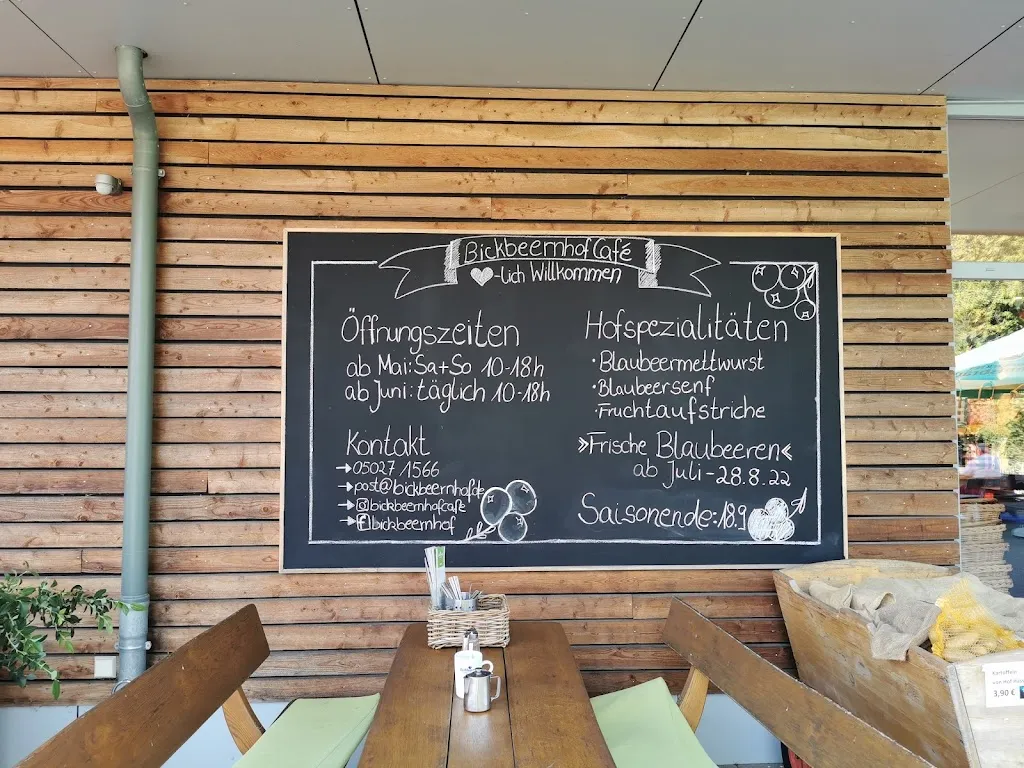 Bickbeernhof Café
-lich Willkommen
Öffnungszeiten
ab Mai: Sa+So 10-18h
ab Juni: täglich 10-18h
Kontakt
→05027 1566
→post@bickbeernhof.de
→bickbeernhofcafe
→bickbeernhof
Hofspezialitäten
·Blaubeermettwurst
·Blaubeersenf
·Fruchtaufstriche
»Frische Blaubeeren«
ab Juli-28.8.22
Saisonende: 18.9
Kartoffeln
von Hof
3,90 €